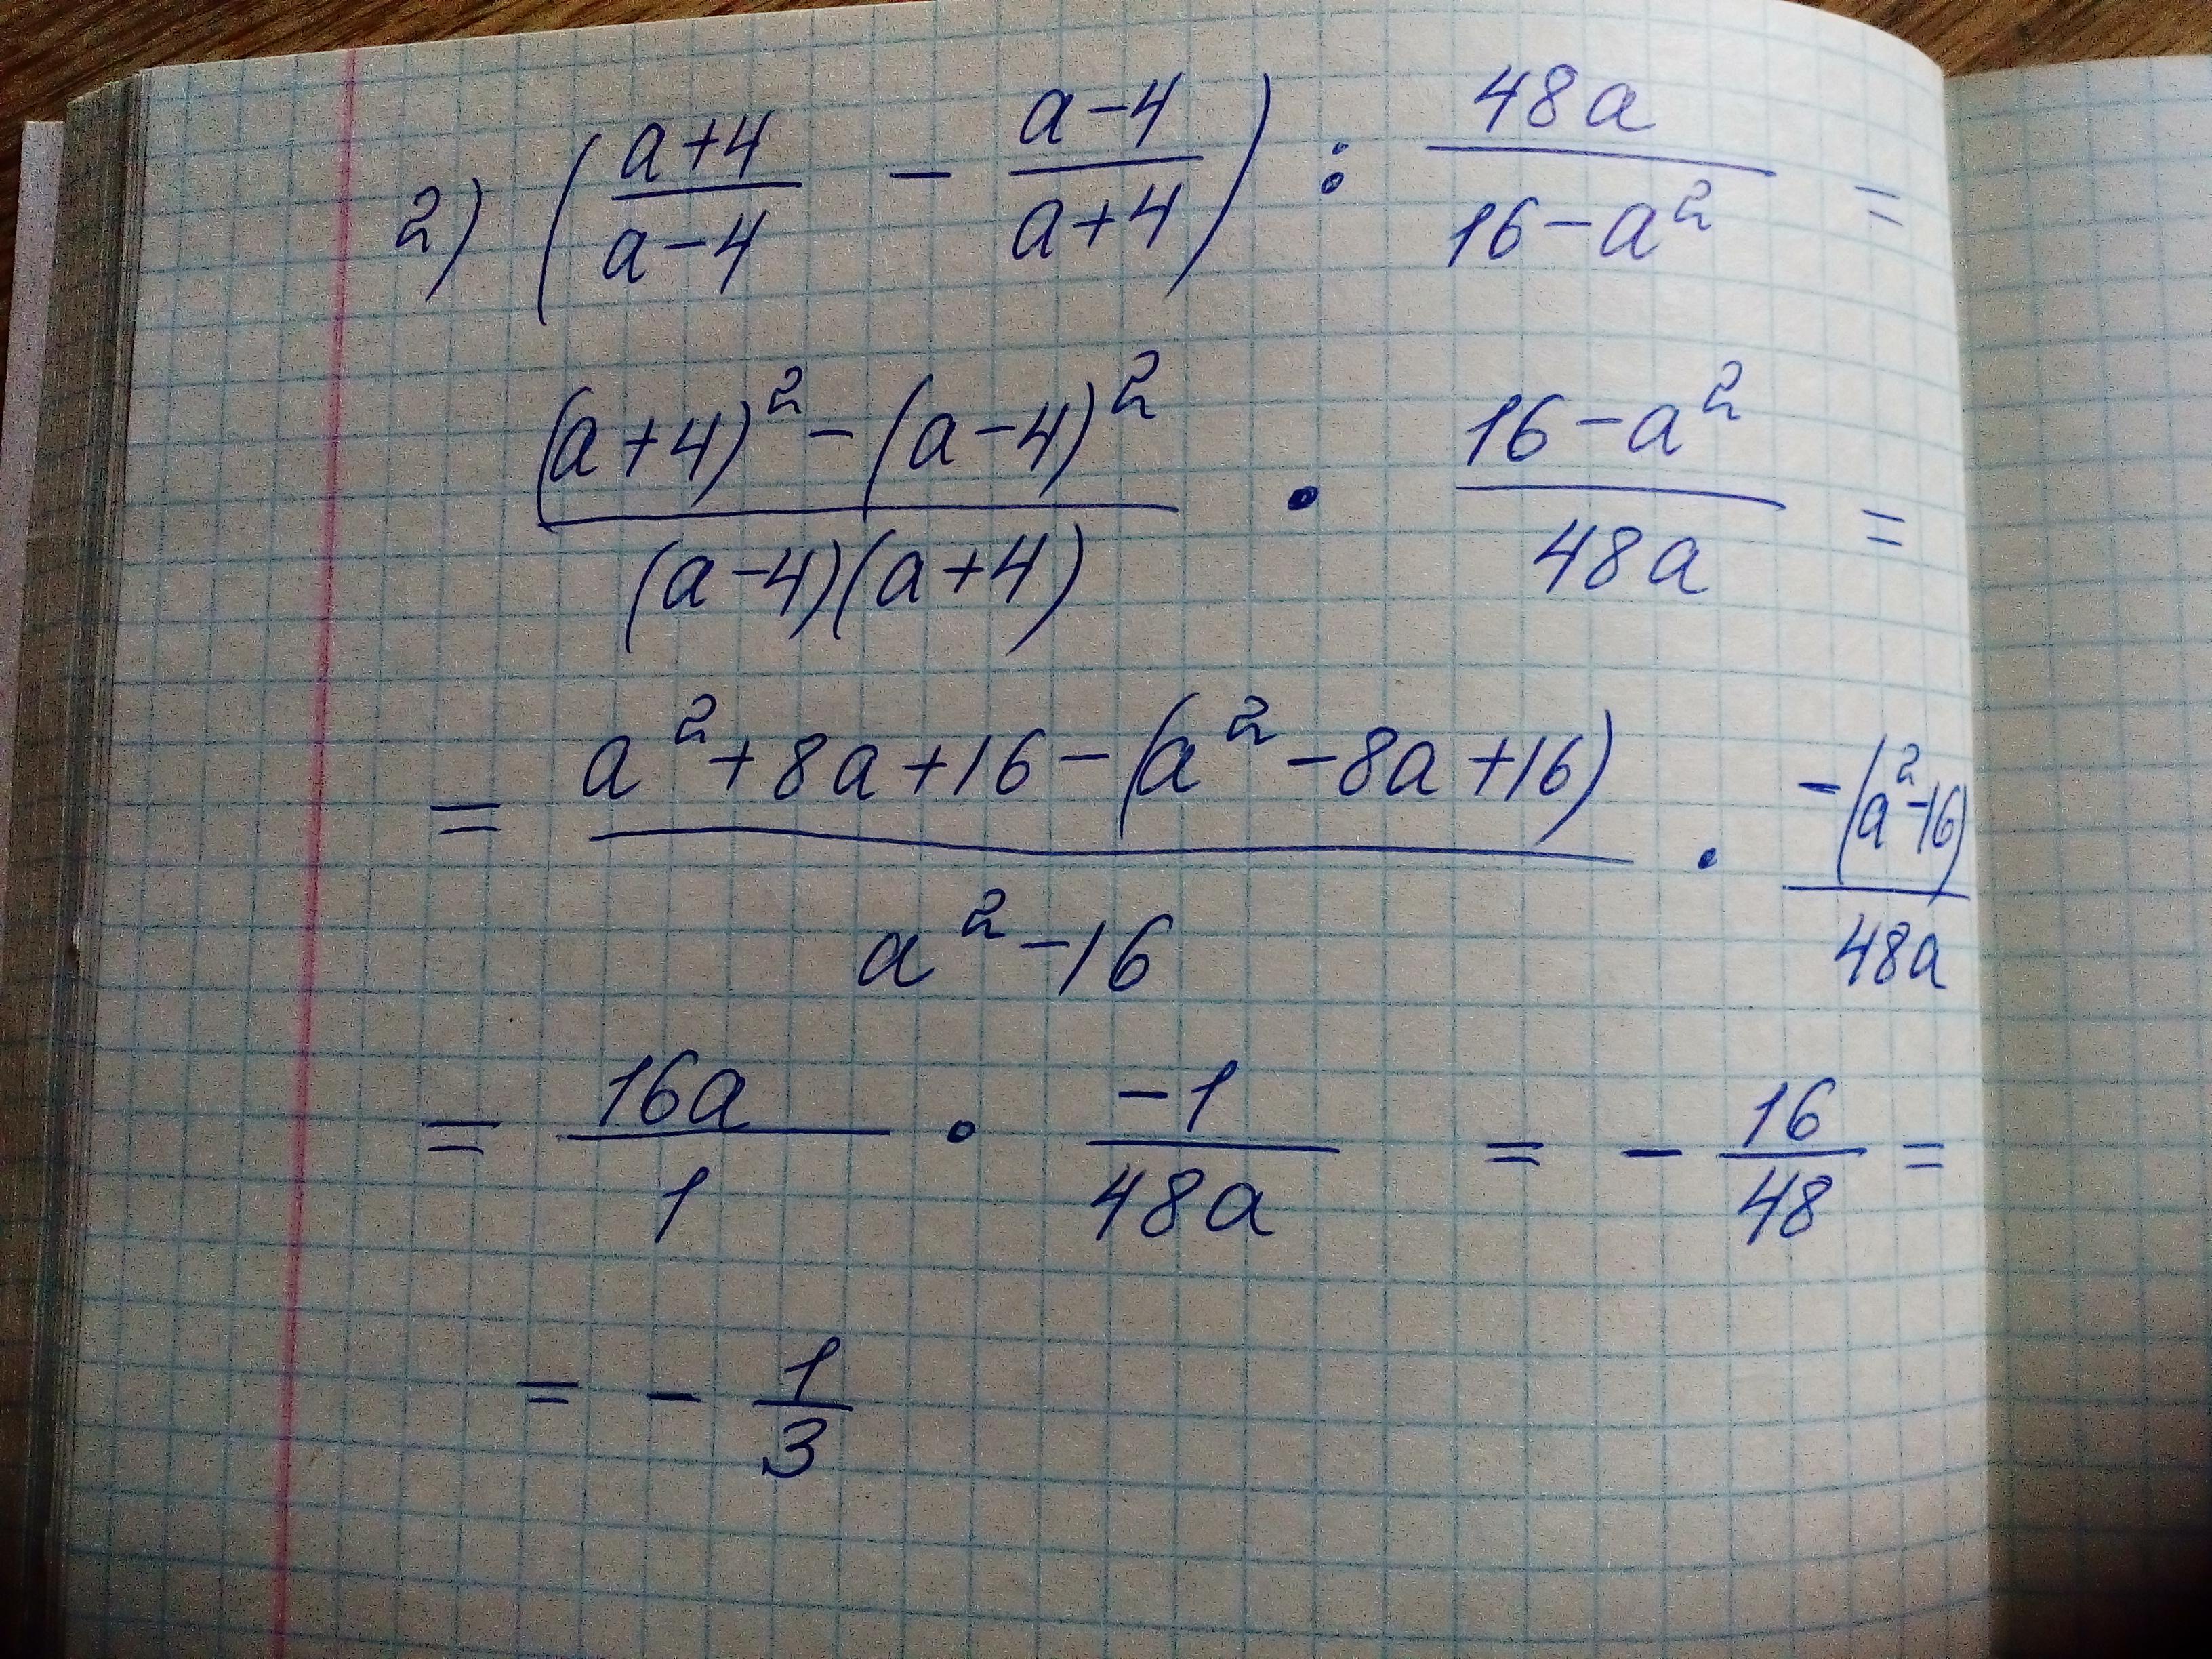 2) ( (a+4)/(a-4) - (a-4)/(a+4) ) : 48a/(16-a²) =
((a+4)² - (a-4)²)/((a-4)(a+4)) · (16-a²)/48a =
= (a²+8a+16-(a²-8a+16))/(a²-16) · -(a²-16)/48a
= 16a/1 · -1/48a = - 16/48 =
= - 1/3